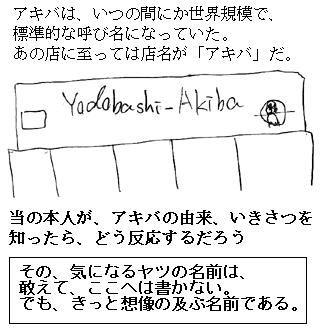 アキバは、いつの間にか世界規模で、
標準的な呼び名になっていた。
あの店に至っては店名が「アキバ」だ。
Yodobashi-Akiba
当の本人が、アキバの由来、いきさつを
知ったら、どう反応するだろう
その、気になるヤツの名前は、
敢えて、ここへは書かない。
でも、きっと想像の及ぶ名前である。